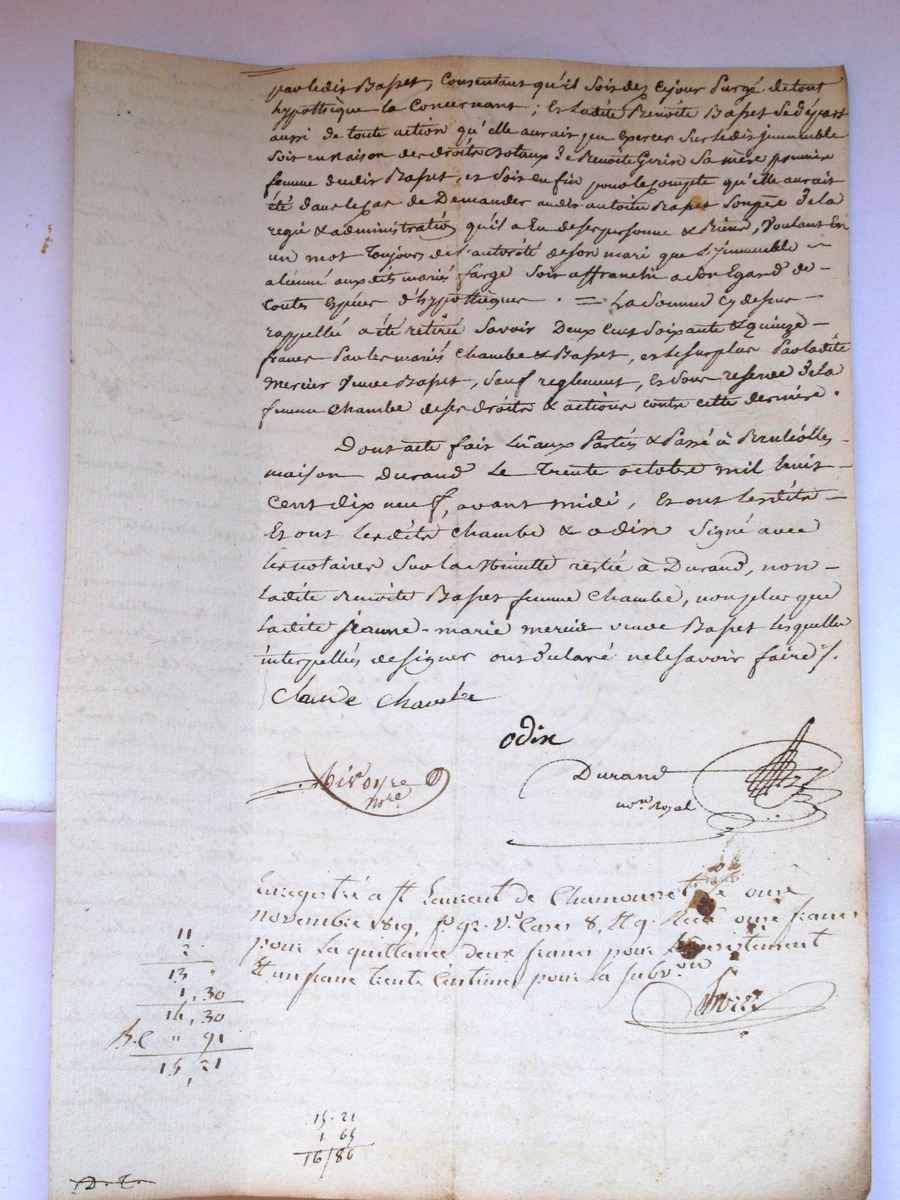 par ledit Basset, Consentant qu'il soit dez cejour Purgé de tout
hypothèque la Concernant ; Et Ladite Benoite Basset Se départ
aussi de toute action qu'elle aurait peu Exercer Sur ledit jmmeuble
Soit en Raison des droits dotaux de Benoite Guerin Sa mère première
femme dudit Basset, et Soit En fin pour le compte qu'elle aurait
été dans le cas de Demander audit antoine Basset Son père de la
regie & administratio qu'il a Eu de ses personne & Biens, Voulant En
un mot Toujours de l'autorité de son mari que L'jmmeuble
aliénné aux dits mariés farge Soit affranchi a Son Egard de
toutes Espèces d'hypothèques . = La Somme Cy dessus
rappellée a été retirée Savoir Deux Cent Soixante & quinze
francs Par les mariés Chambe & Basset, et le surplus Par ladite
Mercier Veuve Basset, Sauf reglement, Et Sous reserve de la
femme Chambe de ses droits & actions contre cette dernière .
Dont acte fait Lu aux Parties & Passé à Brulliolles
maison Durand Le Trente octobre mil huit
Cent dix neuf, avant midi, Et ont lesdits
Et ont lesdits Chambe & odin Signé avec
les notaires Sur la Minutte restée à Durand, non
Ladite Benoite Basset femme Chambe, non plus que
Ladite jeanne-marie mercier veuve Basset lesquelles
interpellés de signer ont déclaré ne le savoir faire ./.
Claude Chambe
odin
not.re
Durand
not.re Royal
Enregistré a St Laurent de Chamousset le onze
novembre 1819, f.o 92. V.o Cases 8, Et 9. Reçu onze francs
pour La quittance deux francs pour
Et un franc trente Centimes pour la Subv.on
11
2.
13 "
1, 30
14, 30
" 91
15, 21
15. 21
1 65
16/86